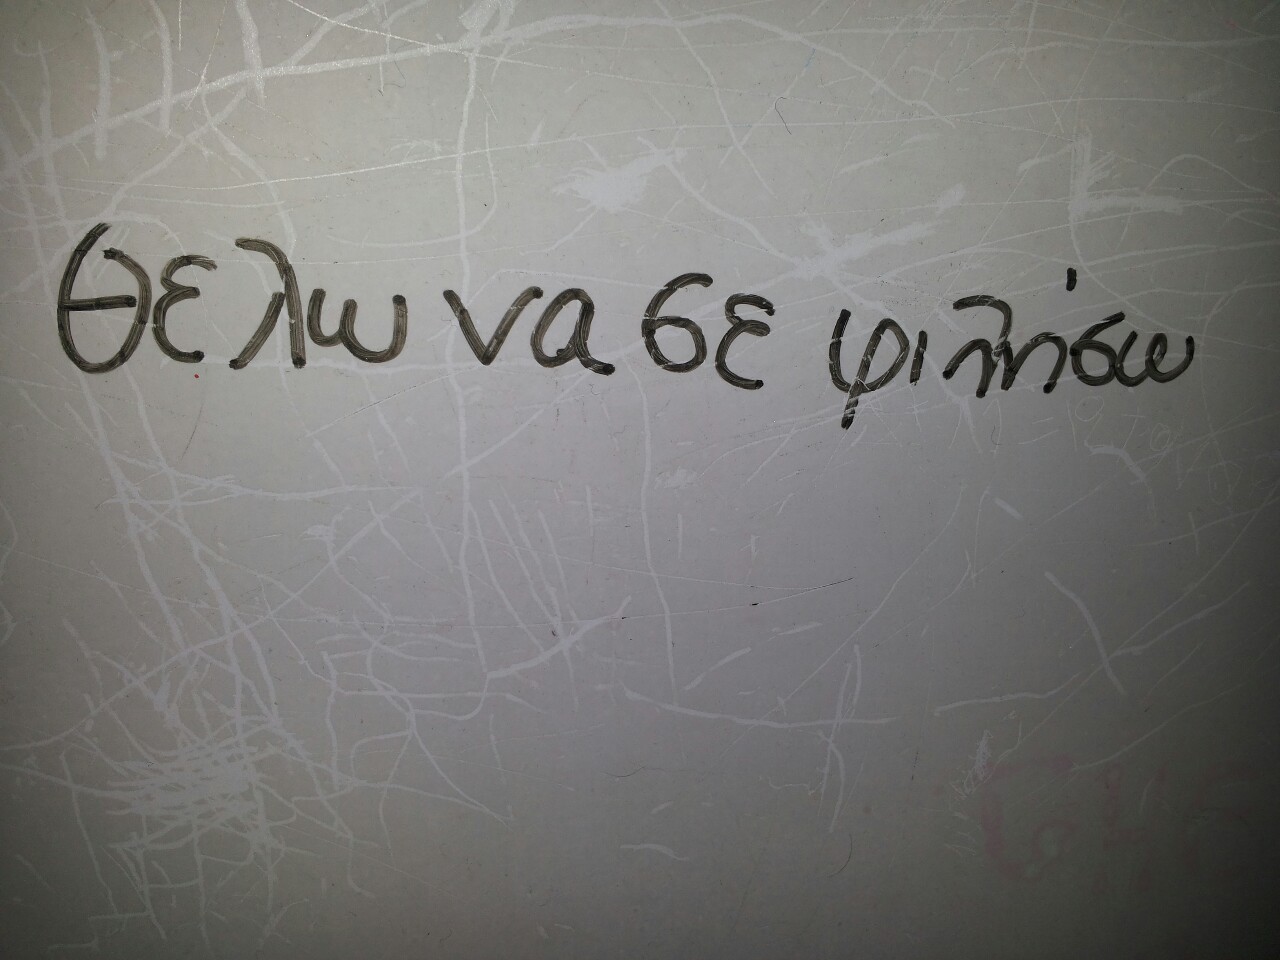 θελω να σε φιλήσω